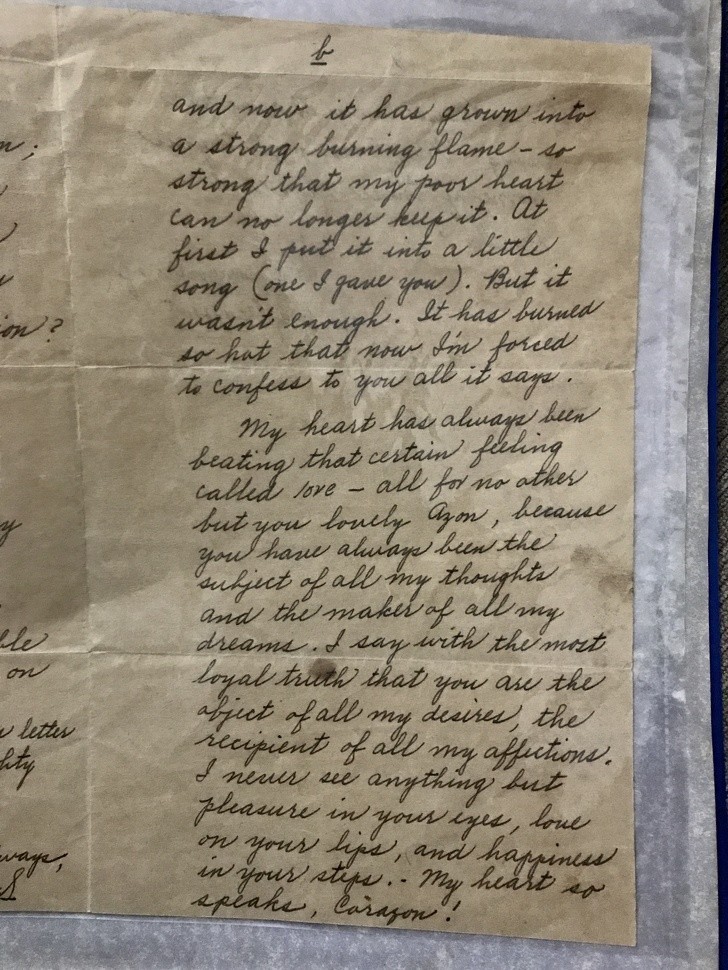 b
and now it has grown into
a strong burning flame – so
strong that my poor heart
can no longer keep it. At
first I put it into a little
song (one I gave you). But it
wasn't enough. It has burned
so hot that now I'm forced
to confess to you all it says.
My heart has always been
beating that certain feeling
called love – all for no other
but you lovely Azon, because
you have always been the
subject of all my thoughts
and the maker of all my
dreams. I say with the most
loyal truth that you are the
object of all my desires, the
recipient of all my affections.
I never see anything but
pleasure in your eyes, love
on your lips, and happiness
in your steps. - My heart so
speaks, Corazon!
ion?
ble
on
letter
hty
ways,
S